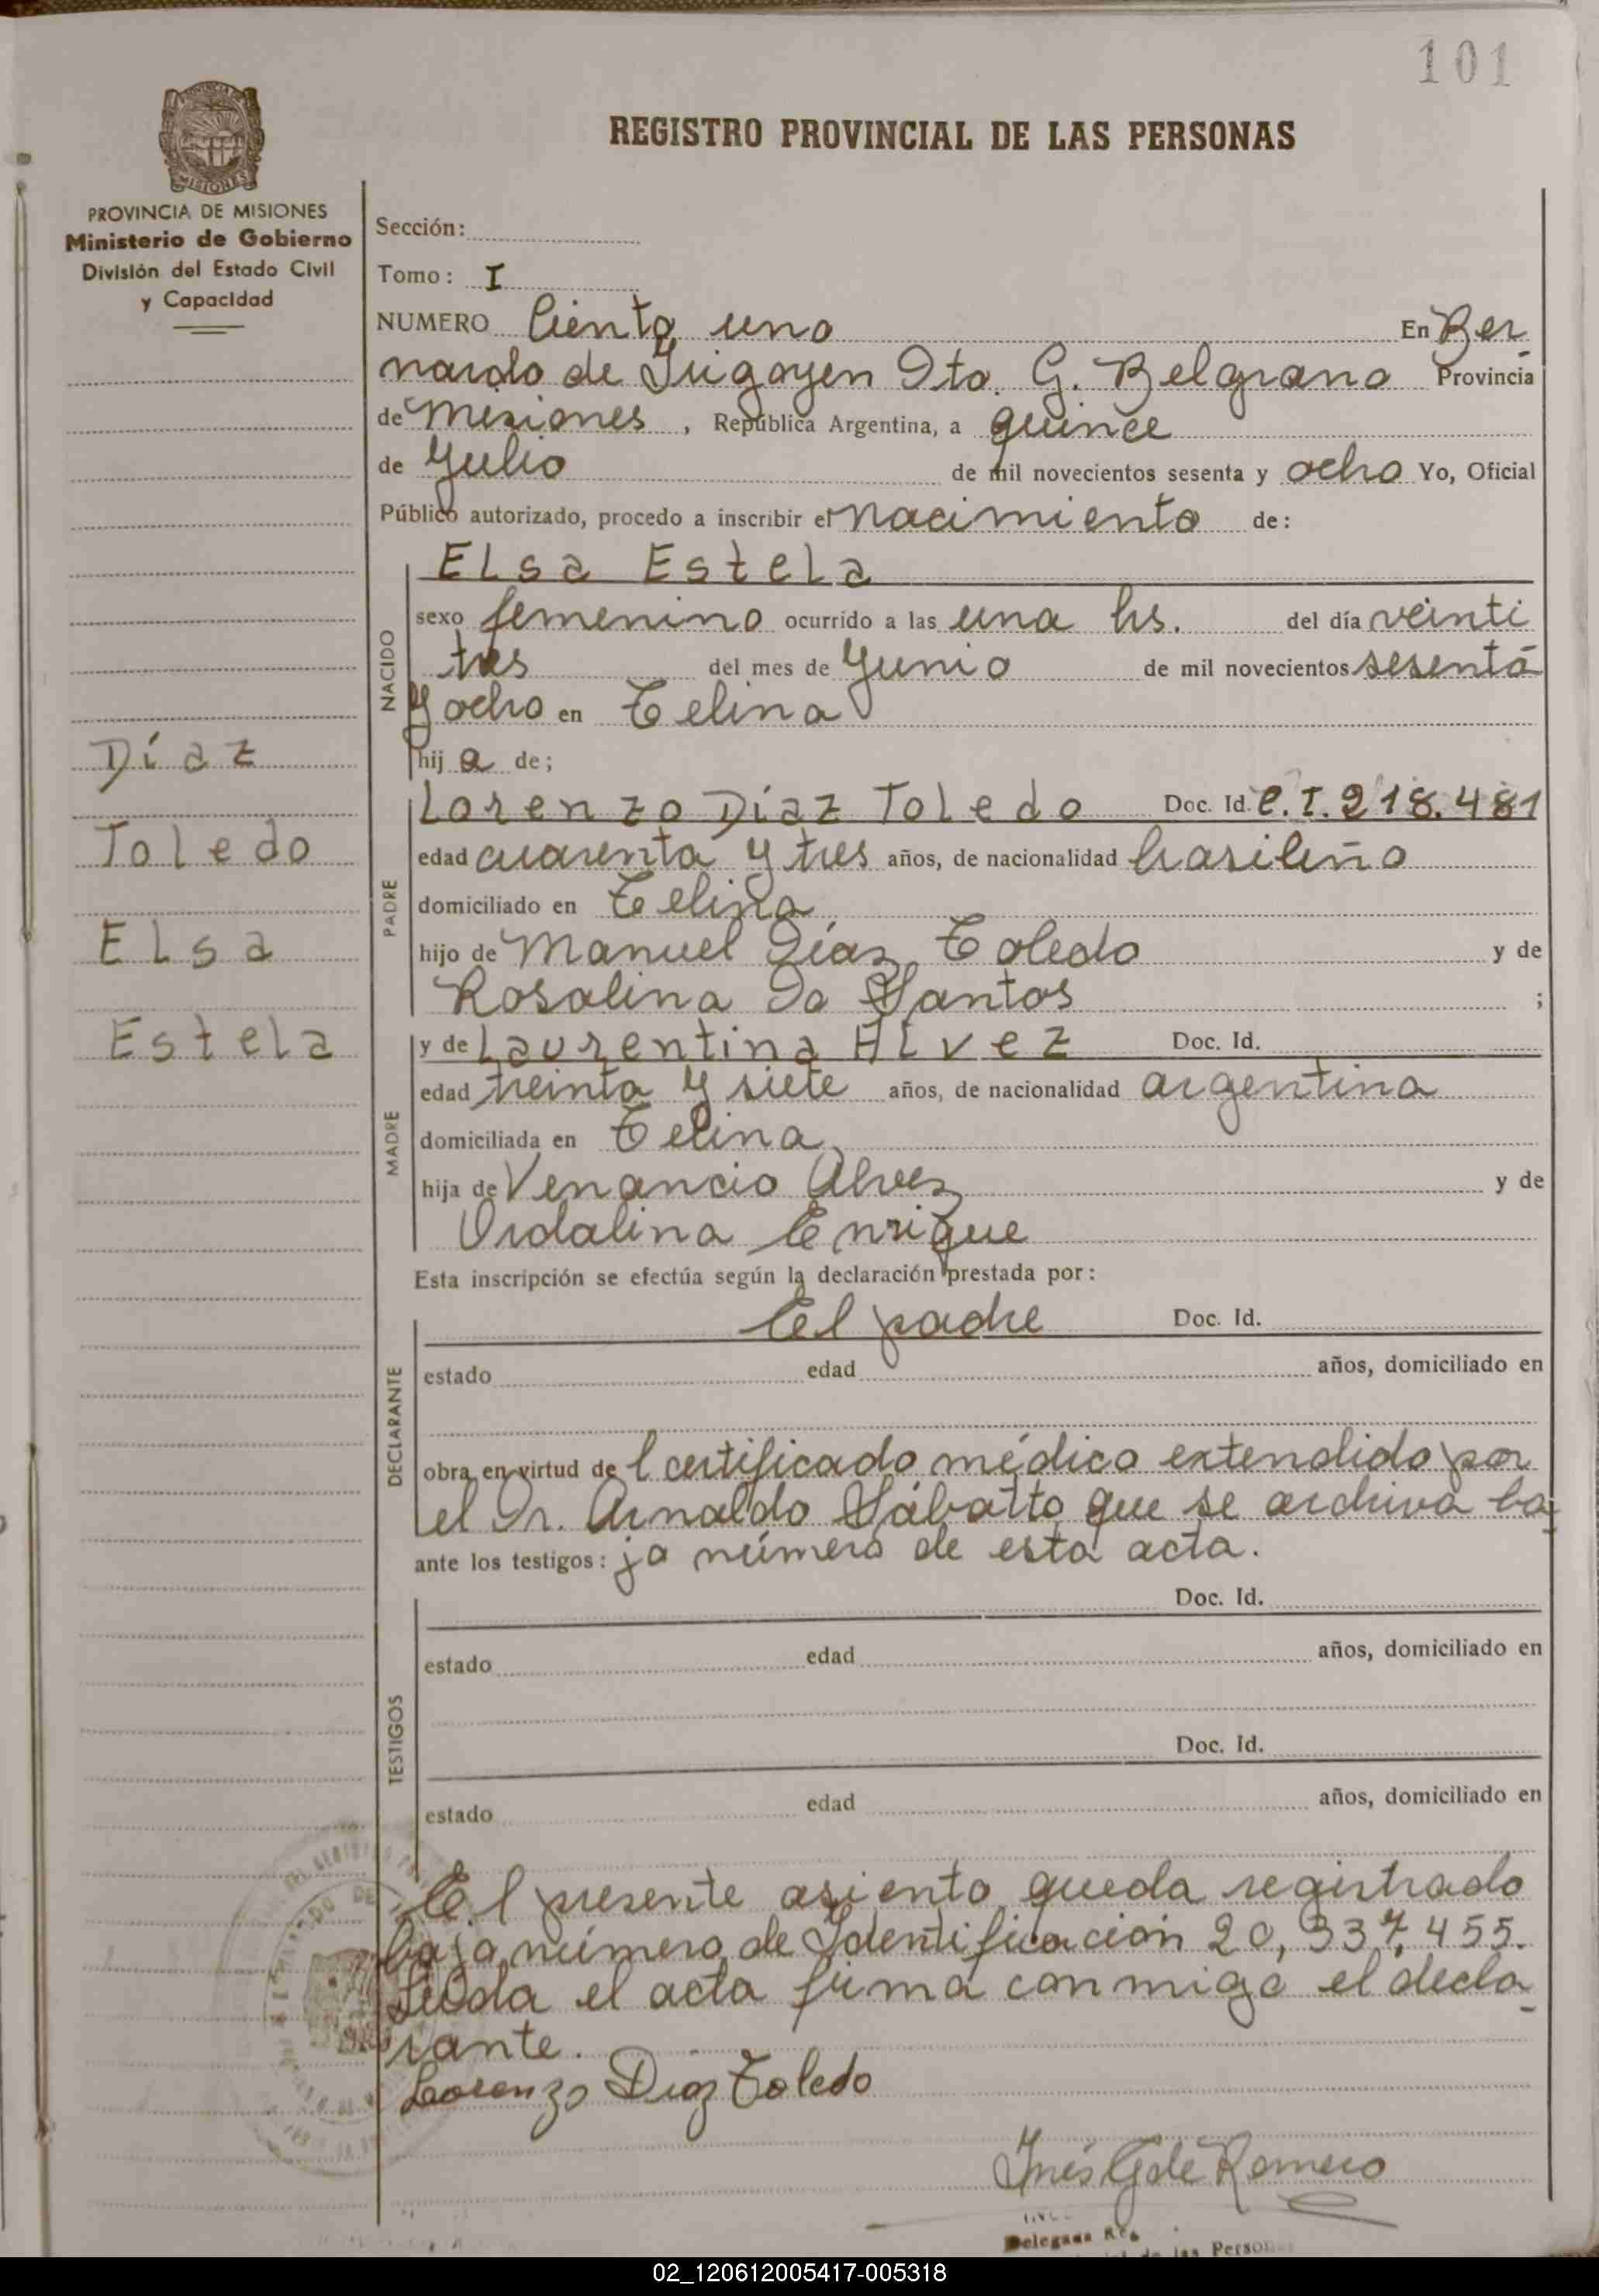 101
REGISTRO PROVINCIAL DE LAS PERSONAS
PROVINCIA DE MISIONES
Ministerio de Gobierno
División del Estado Civil
y Capacidad
Sección:
Tomo: I
NUMERO Ciento uno En Ber
nardo de Irigoyen Dto. G. Belgrano Provincia
de Misiones, República Argentina, a quince
de Julio de mil novecientos sesenta y ocho Yo, Oficial
Público autorizado, procedo a inscribir el nacimiento de:
Díaz
Toledo
Elsa
Estela
NACIDO
Elsa Estela
sexo femenino ocurrido a las una hs. del día veinti
tres del mes de Junio de mil novecientos sesenta
y ocho en Celina
hija de;
PADRE
Lorenzo Díaz Toledo Doc. Id. C.I. 218.481
edad cuarenta y tres años, de nacionalidad brasileño
domiciliado en Celina
hijo de Manuel Díaz Toledo y de
Rosalina Do Santos ;
MADRE
y de Laurentina Alvez Doc. Id.
edad treinta y siete años, de nacionalidad argentina
domiciliada en Celina
hija de Venancio Alvez y de
Ordalina Enrique
Esta inscripción se efectúa según la declaración prestada por:
DECLARANTE
El padre Doc. Id.
estado edad años, domiciliado en
obra en virtud del certificado médico extendido por
el Dr. Arnaldo Sábatto que se archiva ba
ante los testigos: jo número de esta acta.
TESTIGOS
Doc. Id.
estado edad años, domiciliado en
Doc. Id.
estado edad años, domiciliado en
El presente asiento queda registrado
bajo número de Identificación 20,337,455.
Leída el acta firma conmigo el decla
rante.
Lorenzo Diaz Toledo
Inés G de Romero
Delegada
de las Person
02_120612005417-005318